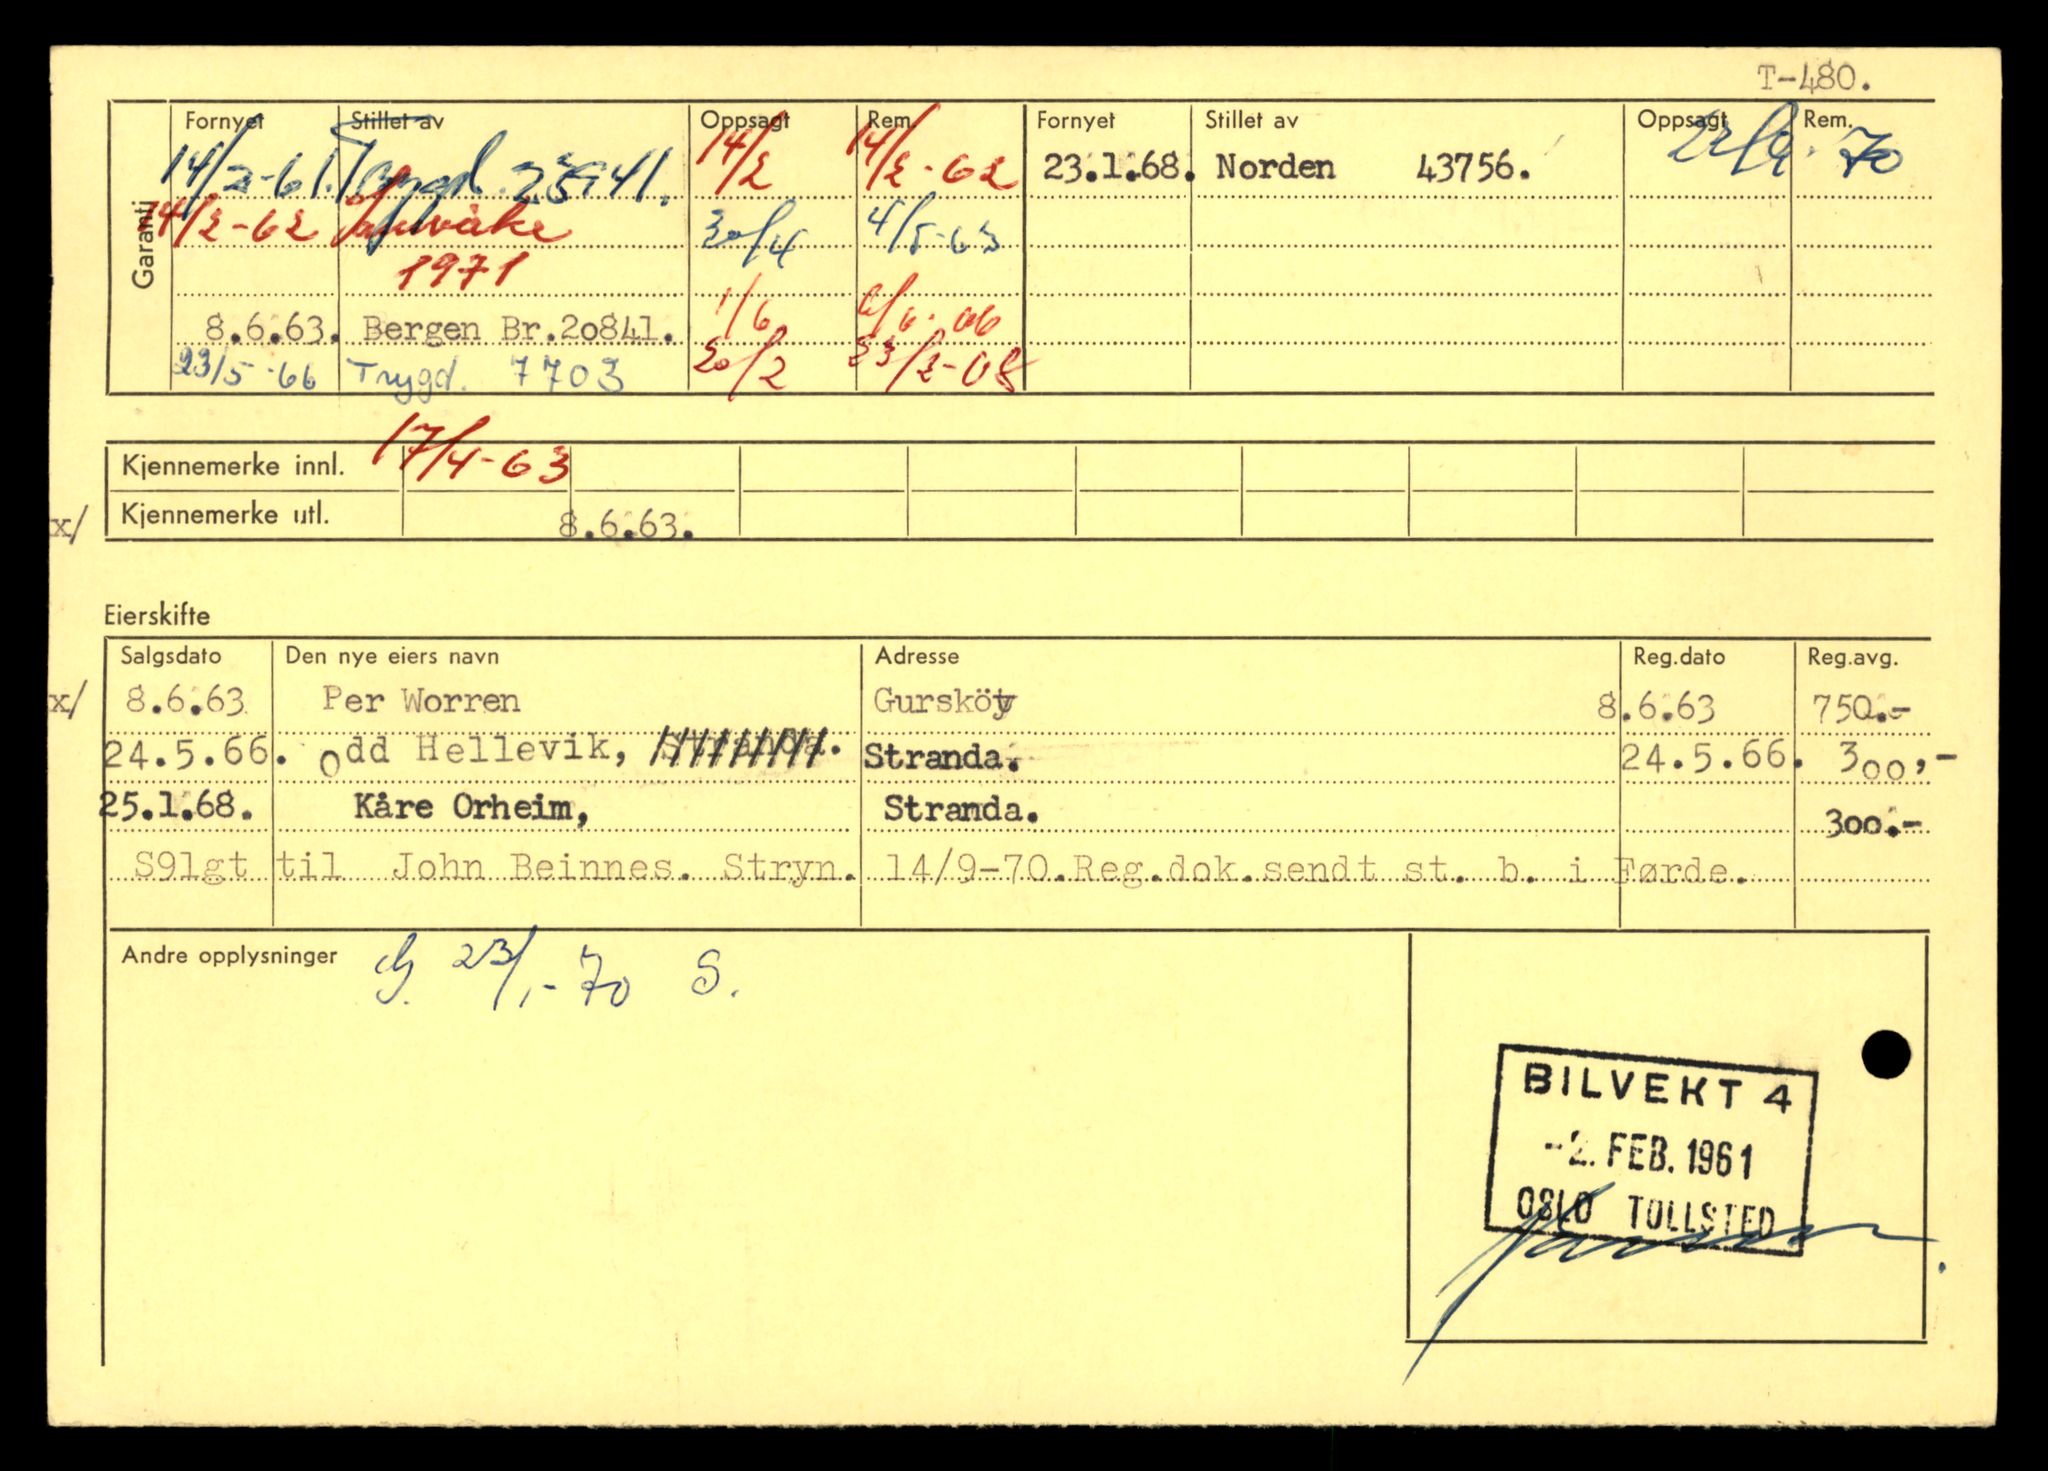 T-480.
Garanti
Fornyet Stillet av Oppsagt Rem. Fornyet Stillet av Oppsagt Rem.
14/2-61. Trygd. 14/2 14/2-62 23.1.68. Norden 43756. 70
14/2-62 30/4 4/5-63
1971
8.6.63. Bergen Br.20841. 1/6 6/6-66
23/5-66 Trygd. 7703 20/2 23/2-68
Kjennemerke innl. 17/4-63
x/ Kjennemerke utl. 8.6.63.
Eierskifte
Salgsdato Den nye eiers navn Adresse Reg.dato Reg.avg.
x/ 8.6.63 Per Worren Gursköy 8.6.63 750.-
24.5.66. Odd Hellevik, Stranda. Stranda. 24.5.66. 300,-
25.1.68. Kåre Orheim, Stranda. 300.-
S9lgt til John Beinnes. Stryn. 14/9-70.Reg.dok.sendt st. b. i Førde.
Andre opplysninger 23/1-70 S.
BILVEKT 4
-2. FEB. 1961
OSLO TOLLSTED